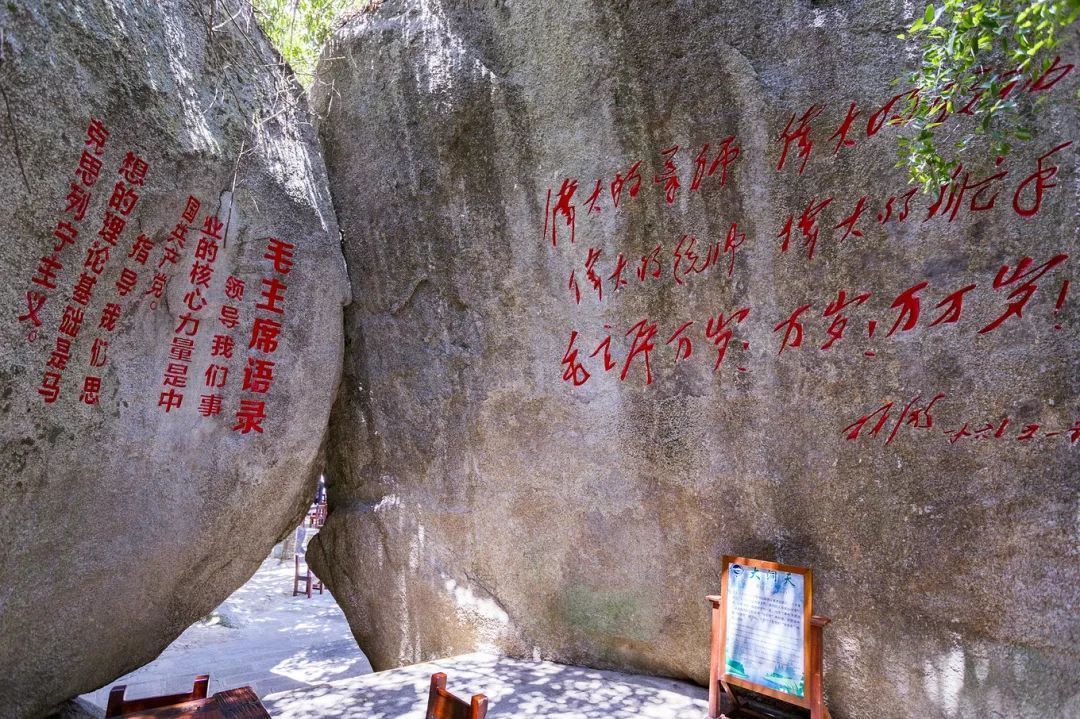 毛主席语录
领导我们事
业的核心力量是中
国共产党。
指导我们思
想的理论基础是马
克思列宁主义。
伟大的导师 伟大的
伟大的统帅 伟大的舵手
毛主席万岁!万岁!万万岁!
林彪
大洞天